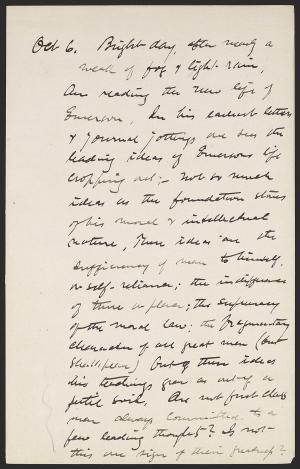 Oct 6. Bright day, after nearly a
week of fog & light rain,
Am reading the new life of
Emerson, In his earliest letters
& journal jottings one sees the
leading ideas of Emersons life
cropping out:- Not so much
ideas as the foundation stones
of his moral & intellectual
nature, These ideas are the
sufficiency of man to himself,
or self-reliance; the indifference
of time or place; the supremacy
of the moral law; the fragmentary
character of all great men (but
Shakspeare) Out of these ideas
his teachings grew as out of a
fertile soil. Are not first class
men always committed to a
few leading thoughts? Is not
this one sign of their greatness?